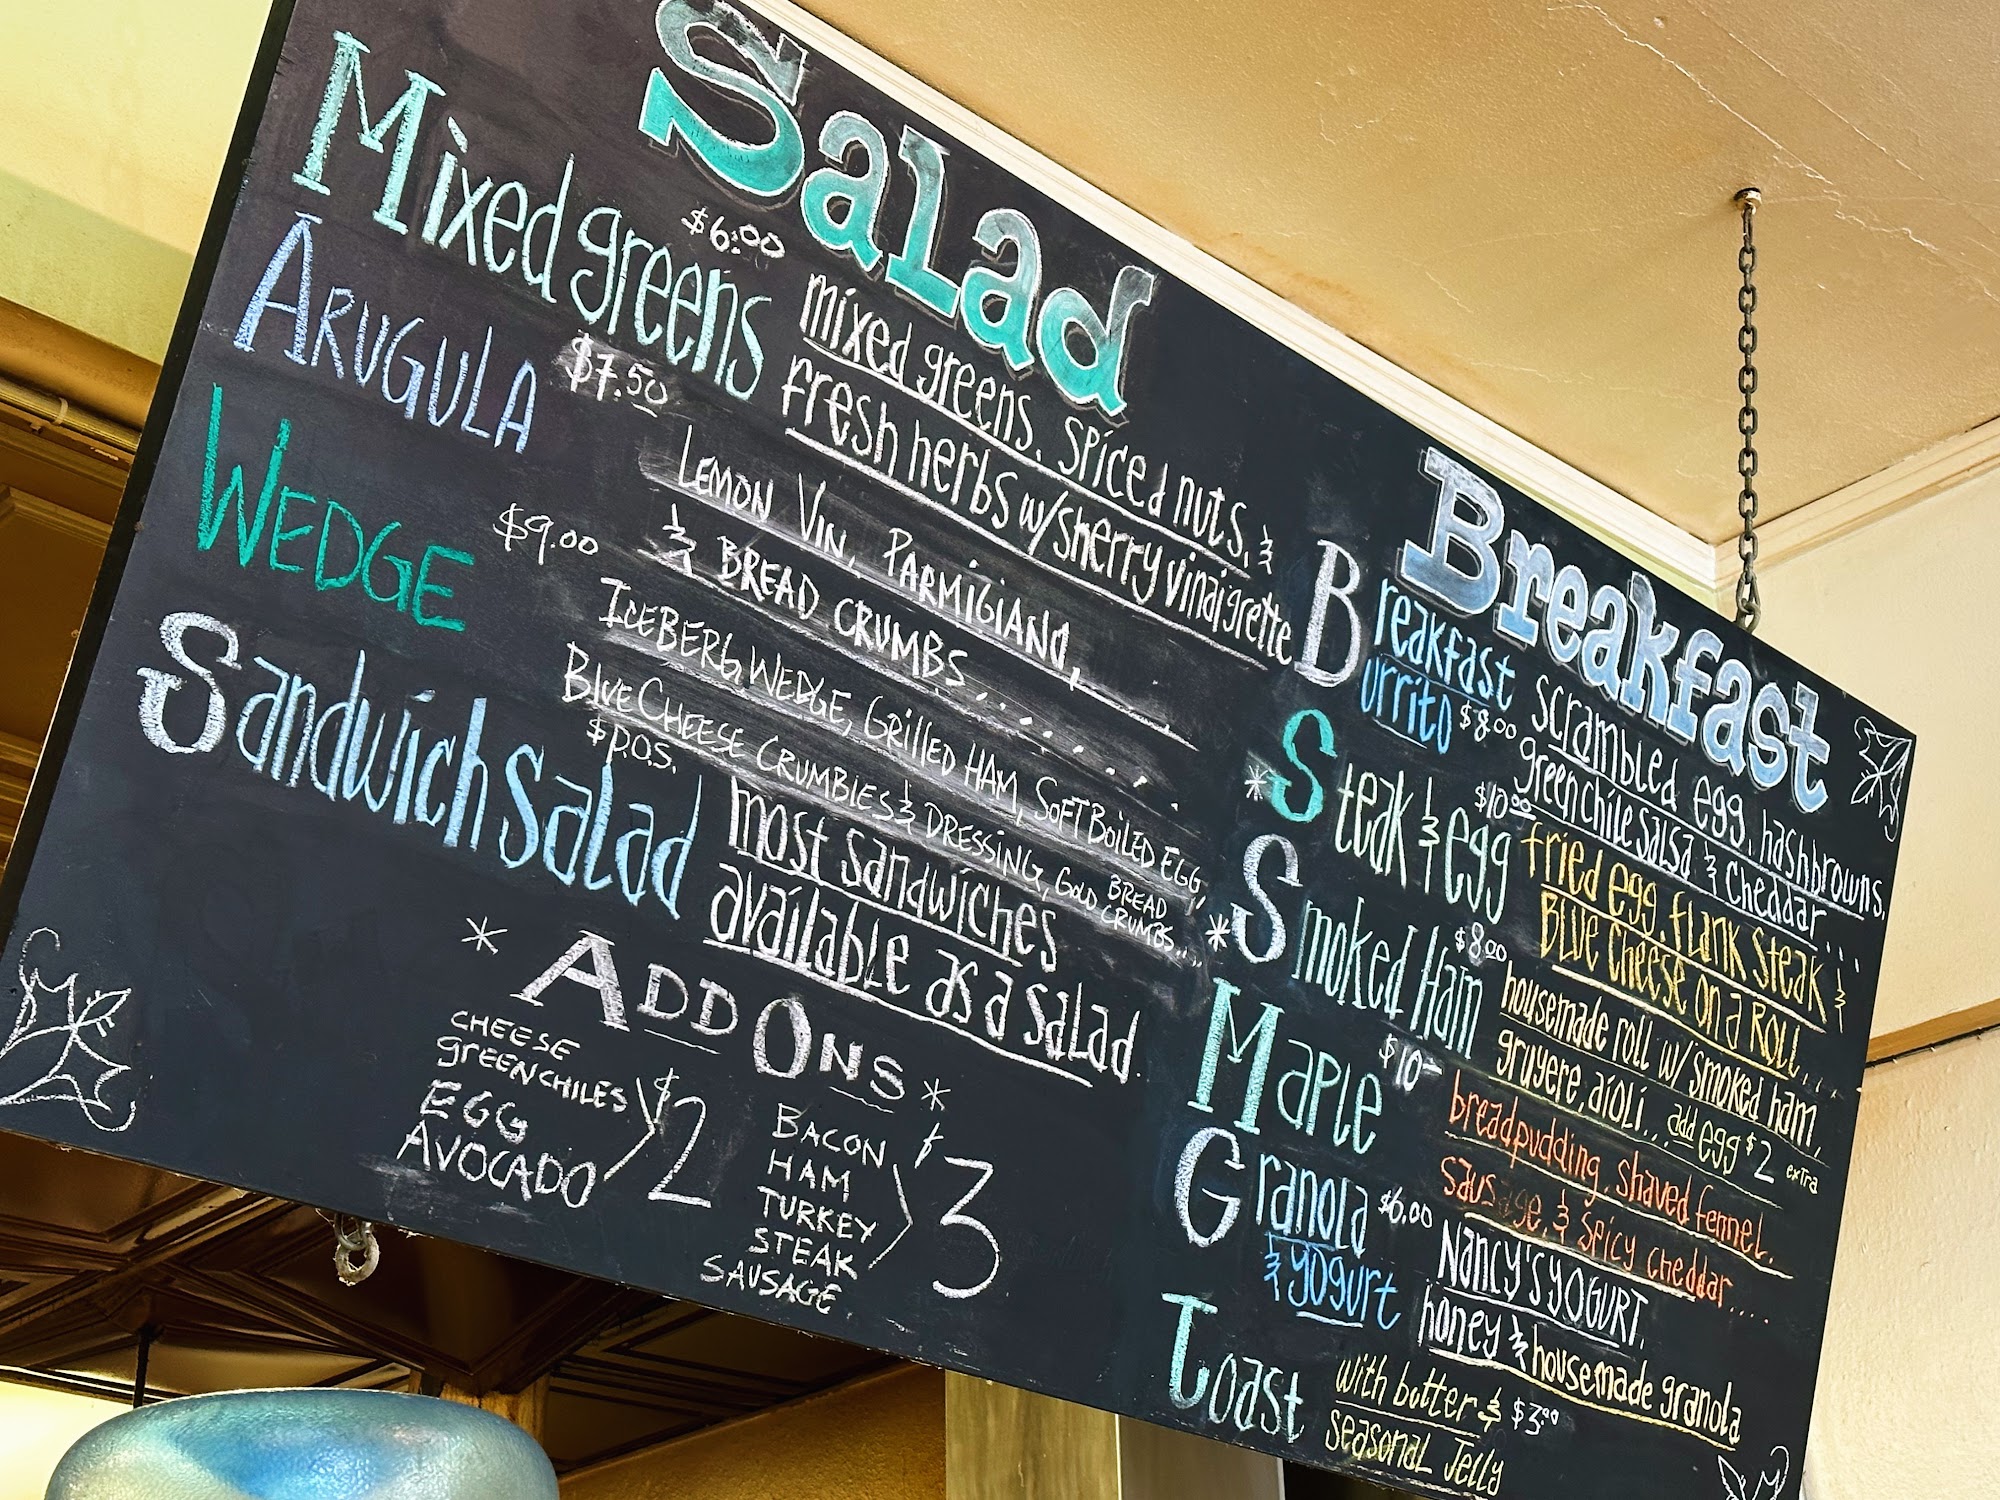 Salad
Mixed greens $6.00
mixed greens, spiced nuts, &
fresh herbs w/sherry vinaigrette
ARUGULA $7.50
LEMON VIN, PARMIGIANO,
& BREAD CRUMBS......
WEDGE $9.00
ICEBERG WEDGE, GRILLED HAM, SOFT BOILED EGG,
BLUE CHEESE CRUMBLES & DRESSING, GOLD BREAD CRUMBS....
Sandwich Salad $P.O.S.
most sandwiches
available as a salad.
* ADD ONS *
CHEESE
GREEN CHILES
EGG
AVOCADO
$2
BACON
HAM
TURKEY
STEAK
SAUSAGE
$3
Breakfast
Breakfast
Burrito $8.00
scrambled egg, hashbrowns,
green chile salsa & cheddar...
* Steak & egg $10.00
fried egg, flank steak &
Blue cheese on a Roll...
* Smoked Ham $8.00
housemade roll w/ smoked ham,
gruyere, aioli... add egg $2 extra
Maple $10-
breadpudding, shaved fennel,
sausage, & spicy cheddar....
Granola $6.00
& yogurt
Nancy's YOGURT,
honey & housemade granola
Toast
with butter & $3.00
seasonal Jelly